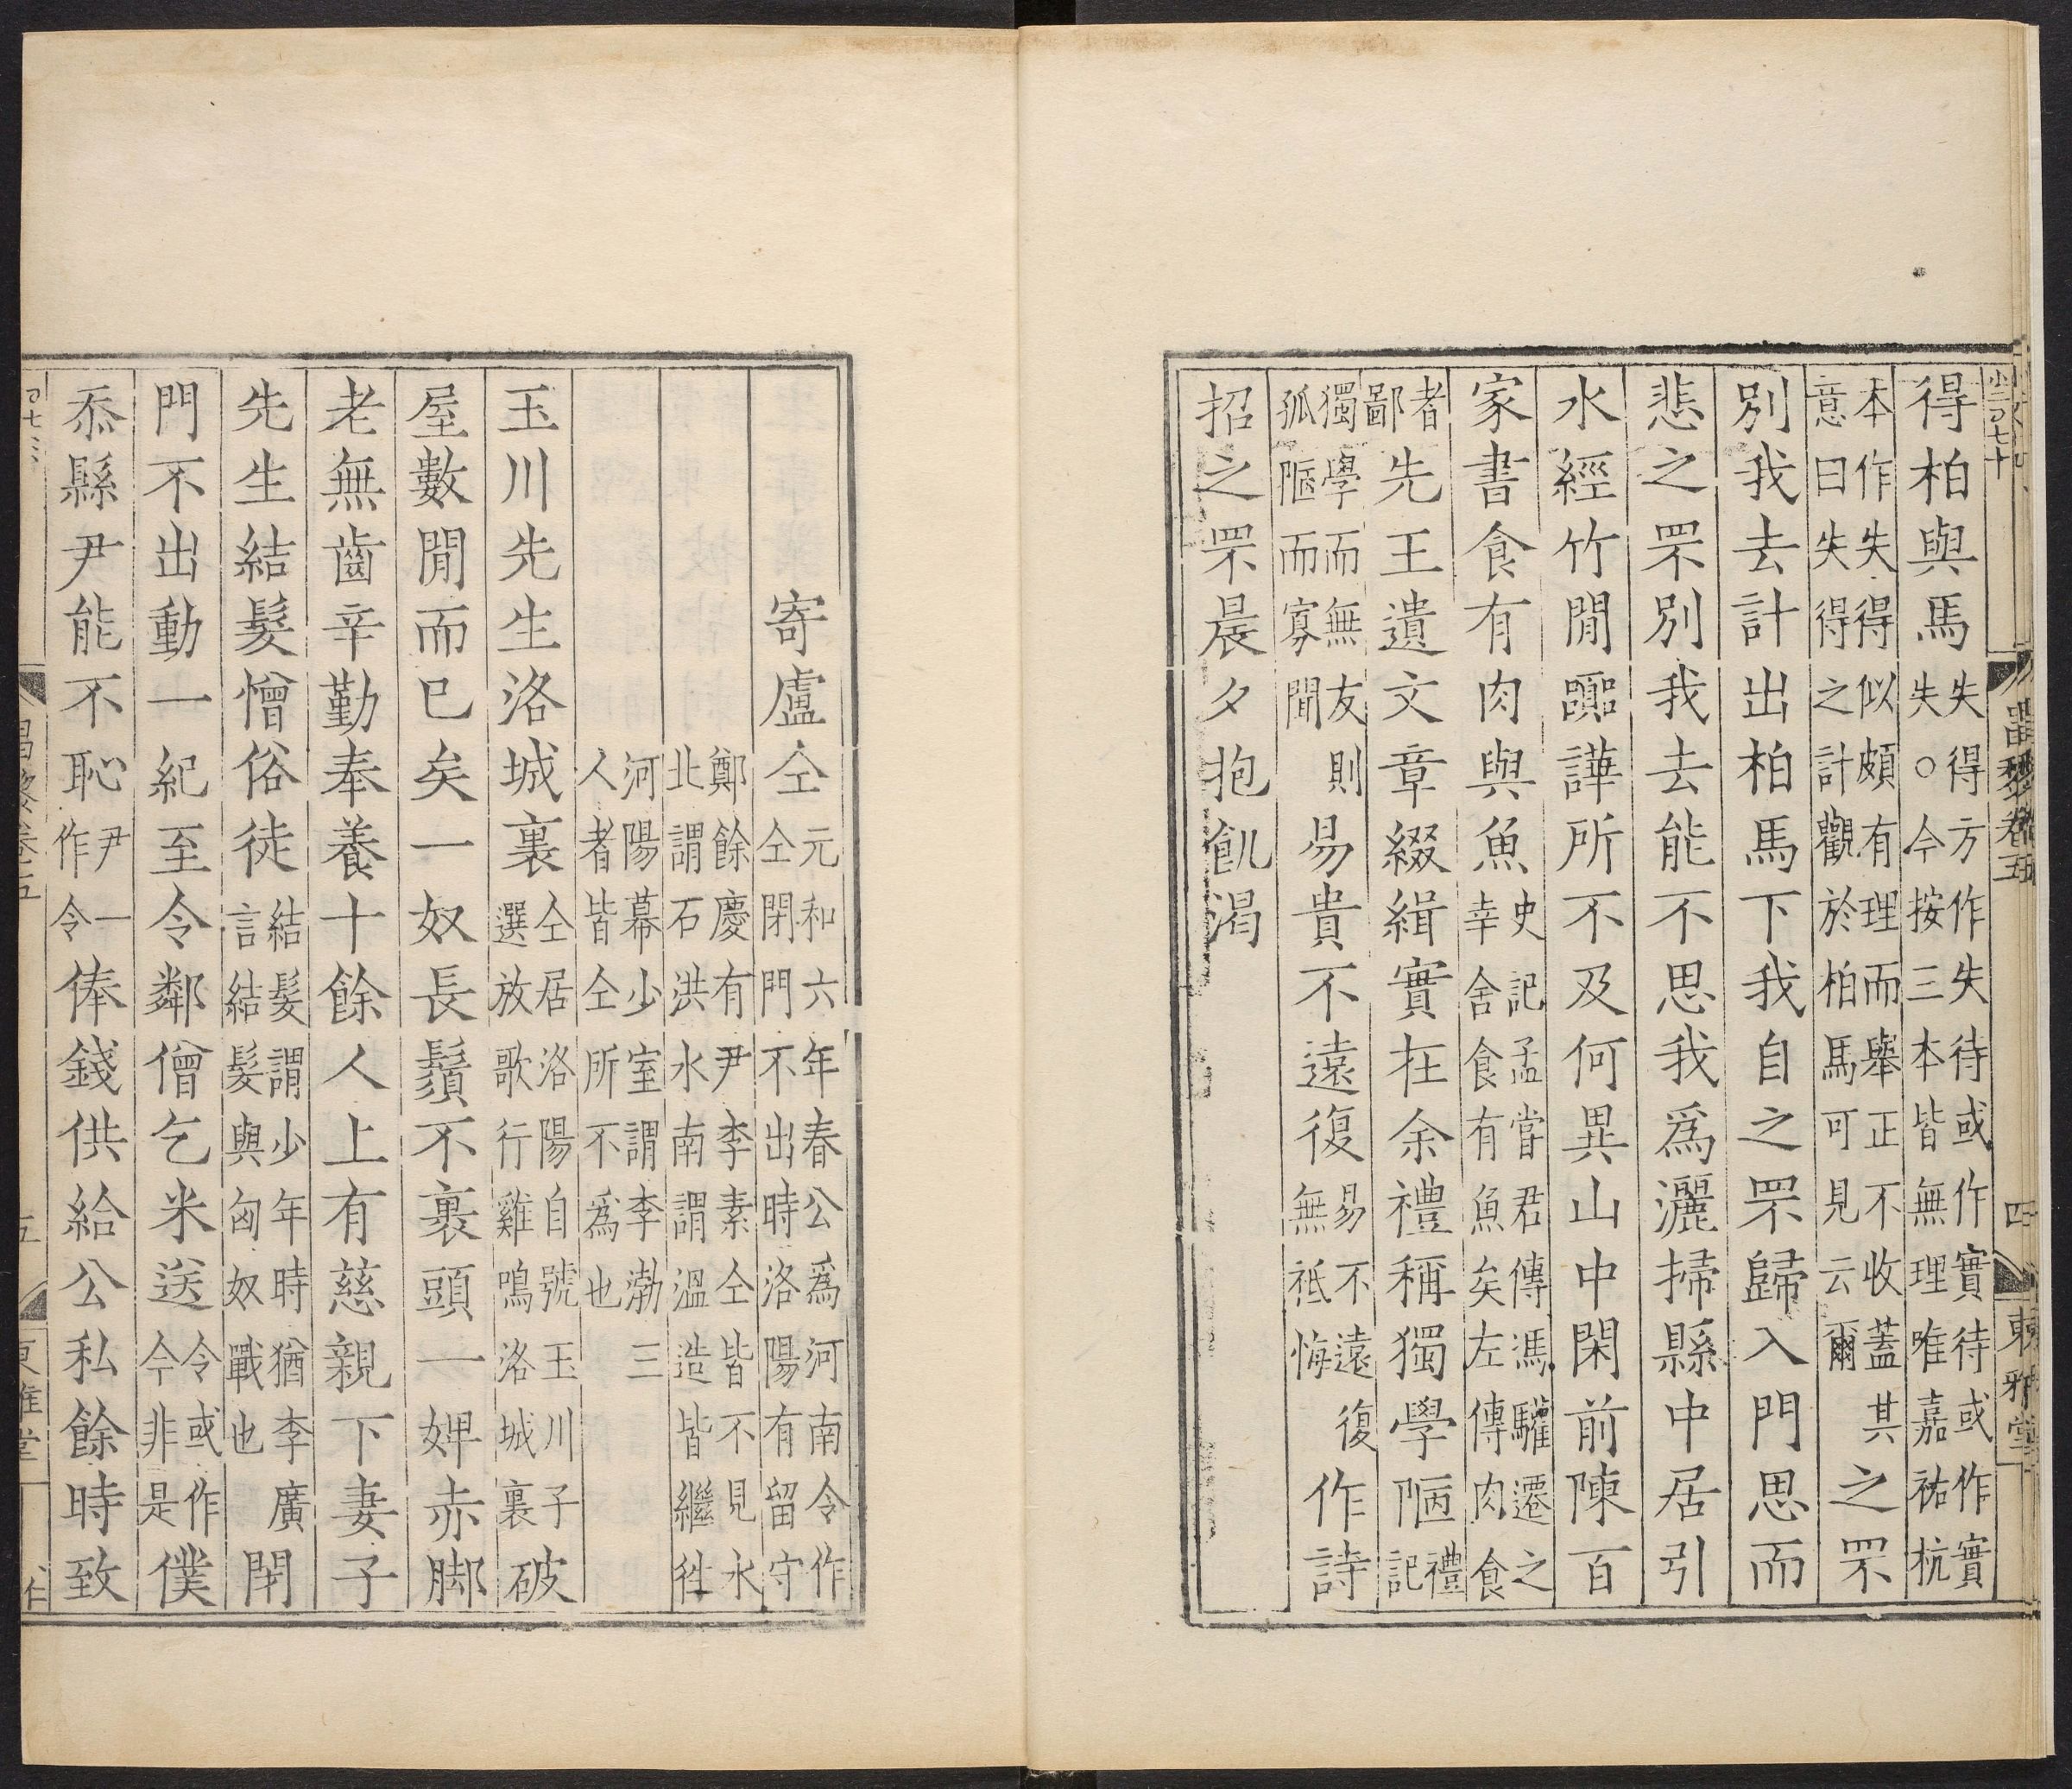 得柏與馬失得方作失待或作實待或作實失○今按三本皆無理唯嘉祐杭
本作失得似頗有理而舉正不收蓋其意曰失得之計觀於柏馬可見云爾之罘
別我去計出柏馬下我自之罘歸入門思而
悲之罘別我去能不思我爲灑掃縣中居引
水經竹閒嚻譁所不及何異山中閑前陳百
家書食有肉與魚史記孟嘗君傳馮驩遷之幸舍食有魚矣左傳肉食
者鄙先王遺文章綴緝實在余禮稱獨學陋禮記
獨學而無友則孤陋而寡聞易貴不遠復易不遠復無祗悔作詩
招之罘晨夕抱飢渴
昌黎卷五
四
東雅堂
寄盧仝元和六年春公爲河南令作仝閉門不出時洛陽有留守
鄭餘慶有尹李素仝皆不見水北謂石洪水南謂溫造皆繼往
河陽幕少室謂李渤三人者皆仝所不爲也
玉川先生洛城裏仝居洛陽自號玉川子選放歌行雞鳴洛城裏破
屋數閒而已矣一奴長鬚不裹頭一婢赤脚
老無齒辛勤奉養十餘人上有慈親下妻子
先生結髮憎俗徒結髮謂少年時猶李廣言結髮與匈奴戰也閉
門不出動一紀至令鄰僧乞米送令或作今非是僕
忝縣尹能不恥尹一作令俸錢供給公私餘時致
昌黎卷五
五
東雅堂